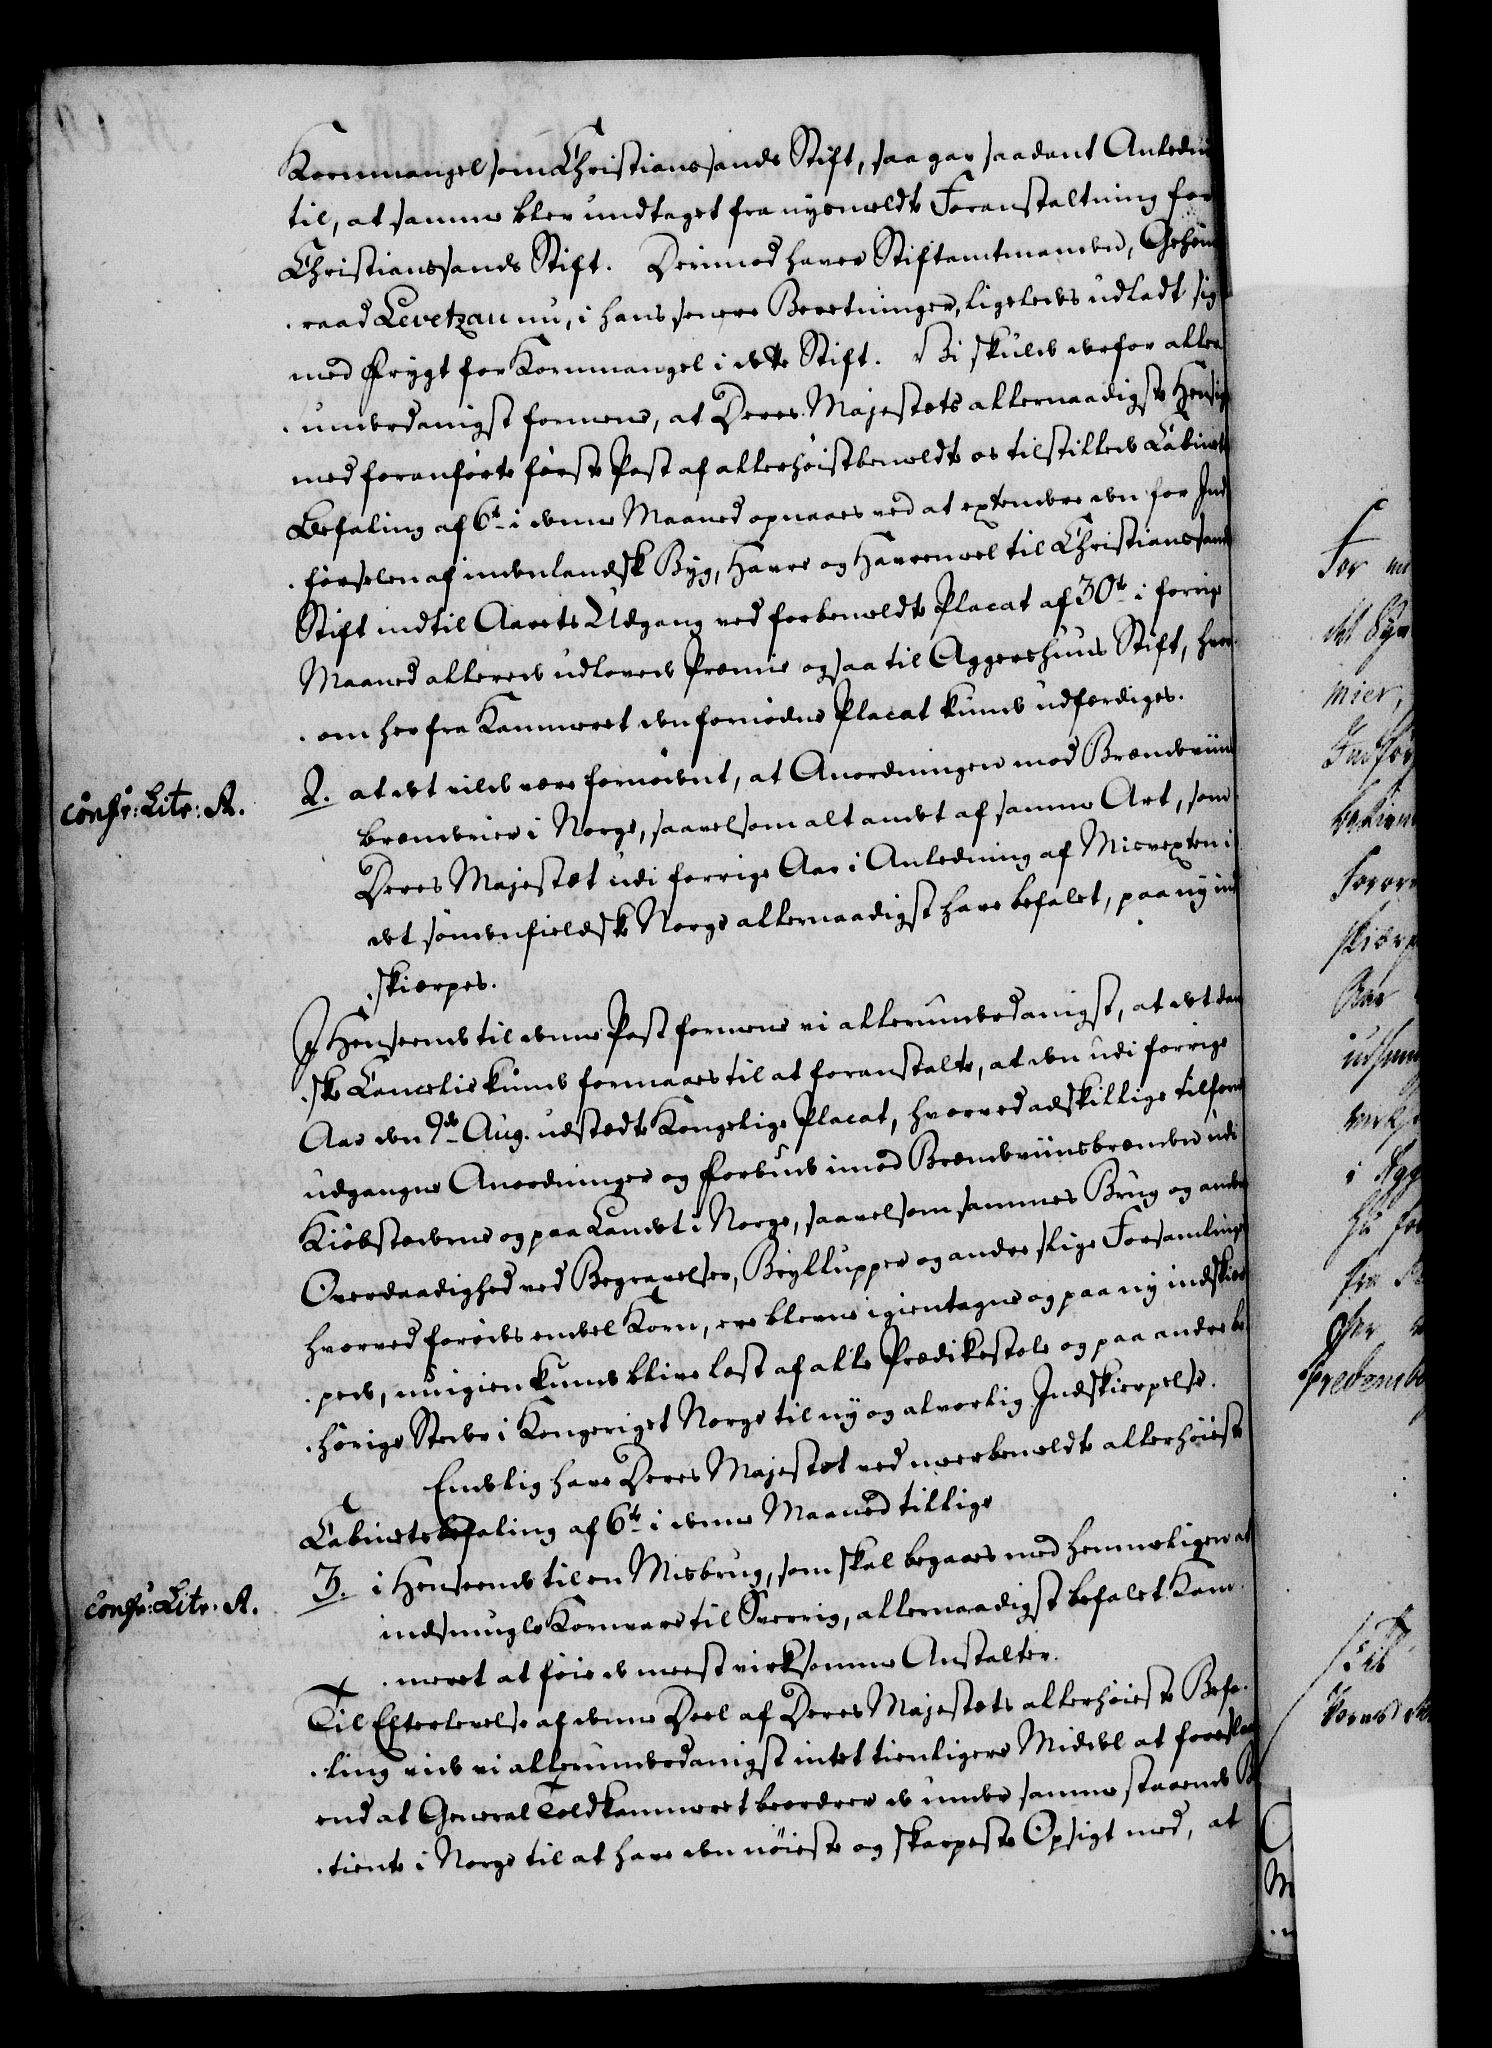 Kornmangel som Christianssands Stift, saa gav saadant Anledn
til, at samme blev undtaget fra nysmeldte Foranstaltning for
Christianssands Stift. Derimod haver Stiftamtmanden, Geheim
raad Levetzau nu, i hans senere Beretninger, ligeledes udladt sig
med Frygt for Kornmangel i dette Stift. Vi skulde derfor aller
underdanigst formene, at Deres Majestæts allernaadigste Hensigt
med foranførte første Post af allerhøistbemeldte os tilstillede Cabinets
Befaling af 6te i denne Maaned opnaaes ved at extendere den for Ind
førselen af indenlandsk Byg, Havre og Havremeel til Christianssands
Stift indtil Aarets Udgang ved forbemeldte Placat af 30te i forrige
Maaned allerede udlovede Præmie ogsaa til Aggershuus Stift, hvor
om her fra Kammeret den fornødne Placat kunde udfærdiges.
confr: Litr: A.
2. at det vilde være fornødent, at Anordningen mod Brændeviins
brænderier i Norge, saavelsom alt andet af samme Art, som
Deres Majestæt udi forrige Aar i Anledning af Misvexten i
det søndenfieldske Norge allernaadigst have befalet, paa ny ind
skiærpes.
I Henseende til denne Post formene vi allerunderdanigst, at det dan
ske Cancelie kunde formaaes til at foranstalte, at den udi forrige
Aar den 9de Aug. udstædte Kongelige Placat, hvorved adskillige tilforn
udgangne Anordninger og Forbud imod Brændeviinsbrænden udi
Kiøbstæderne og paa Landet i Norge, saavelsom sammes Brug og anden
Overdaadighed ved Begravelser, Brylluppe og andre slige Forsamlinger
hvorved forødes endeel Korn, ere blevne igientagne og paa ny indskiær
pede, nu igien kunde blive læst af alle Prædikestole og paa andre be
hørige Stæder i Kongeriget Norge til ny og alvorlig Indskiærpelse.
Endelig have Deres Majestæt ved meerbemeldte allerhøieste
Cabinetsbefaling af 6te i denne Maaned tillige
confr: Litr. A.
3. i Henseende til en Misbrug, som skal begaaes med hemmeligen at
indsmugle Kornvare til Sverrig, allernaadigst befalet Kam
meret at føie de meest virksomme Anstalter.
Til Efterlevelse af denne Deel af Deres Majestæts allerhøieste Befa
ling vide vi allerunderdanigst intet tienligere Middel at foreslaae
end at General Toldkammeret beordrer de under samme staaende Be
tiente i Norge til at have den nøieste og skarpeste Opsigt med, at